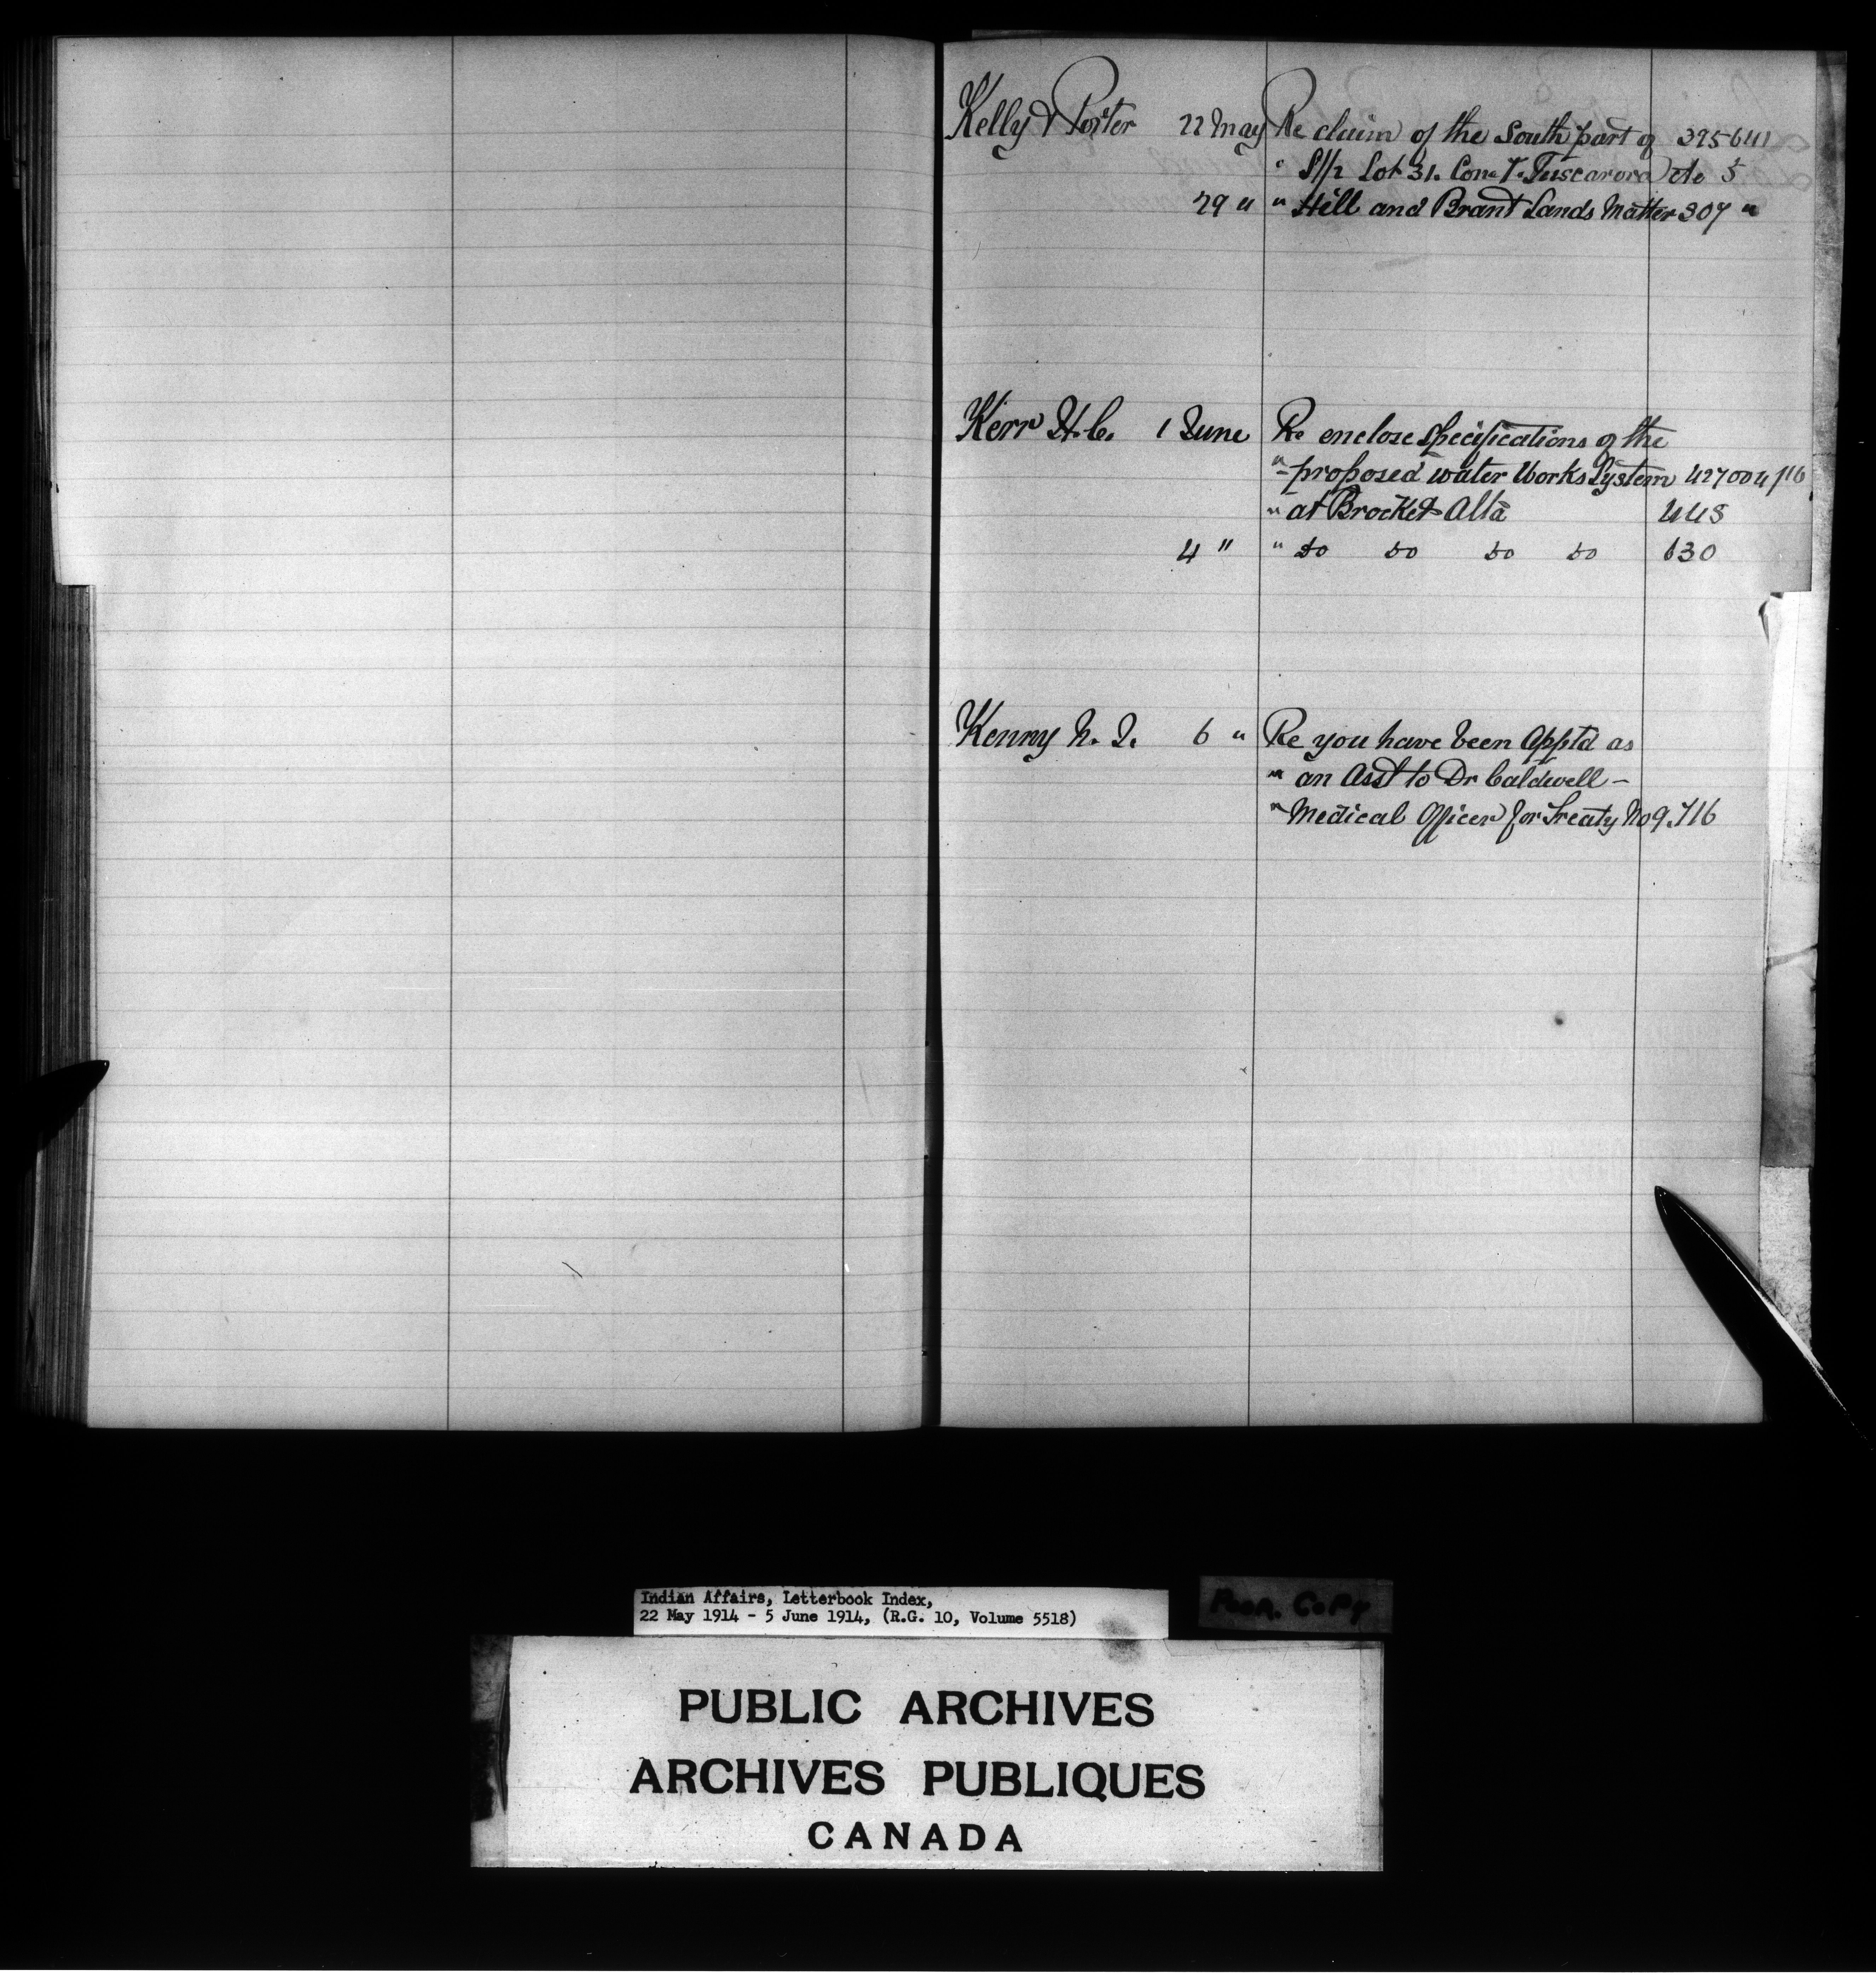 Kelly & Porter 22 May Re claim of the South part of 395641
" S 1/2 Lot 31. Con. V. Tuscarora etc 5
29 " " Hill and Brant Lands Matter 307 "
Kerr H.C. 1 June Re enclose Specifications of the
" proposed water Works System 427004/16
" at Brocket Alta 448
4 " " do do do do 630
Kenny N. J. 6 " Re you have been Apptd as
" an Asst to Dr Caldwell -
" Medical Officer for Treaty No 9. 716
Indian Affairs, Letterbook Index,
22 May 1914 - 5 June 1914, (R.G. 10, Volume 5518)
Poor. Copy
PUBLIC ARCHIVES
ARCHIVES PUBLIQUES
CANADA